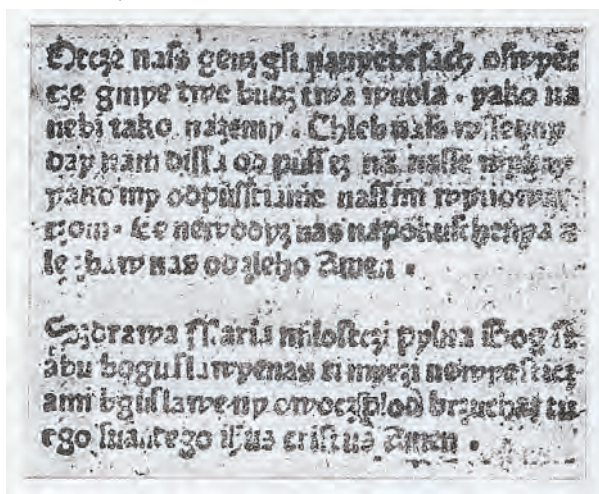 Otcze naſs genz gſi nanyebeſach oſwyet
cze gmye twe budz twa wuola . yako na
nebi tako nazemy . Chleb naſs wſſegny
day nam diſſa od puſſ ez na naſſe
yako my odpuſſtime naſſim wynowat
czom . newodyz nas
le zbaw nas od zleho Amen .
Szdrawa Maria miloſczi pylna Bog ſt
abu boguſlawyenas ti myezi newyeſtacz
ami bguſlawe ny owocz plod brzuchas tu
ego ſuantego iſus criſtus Amen .